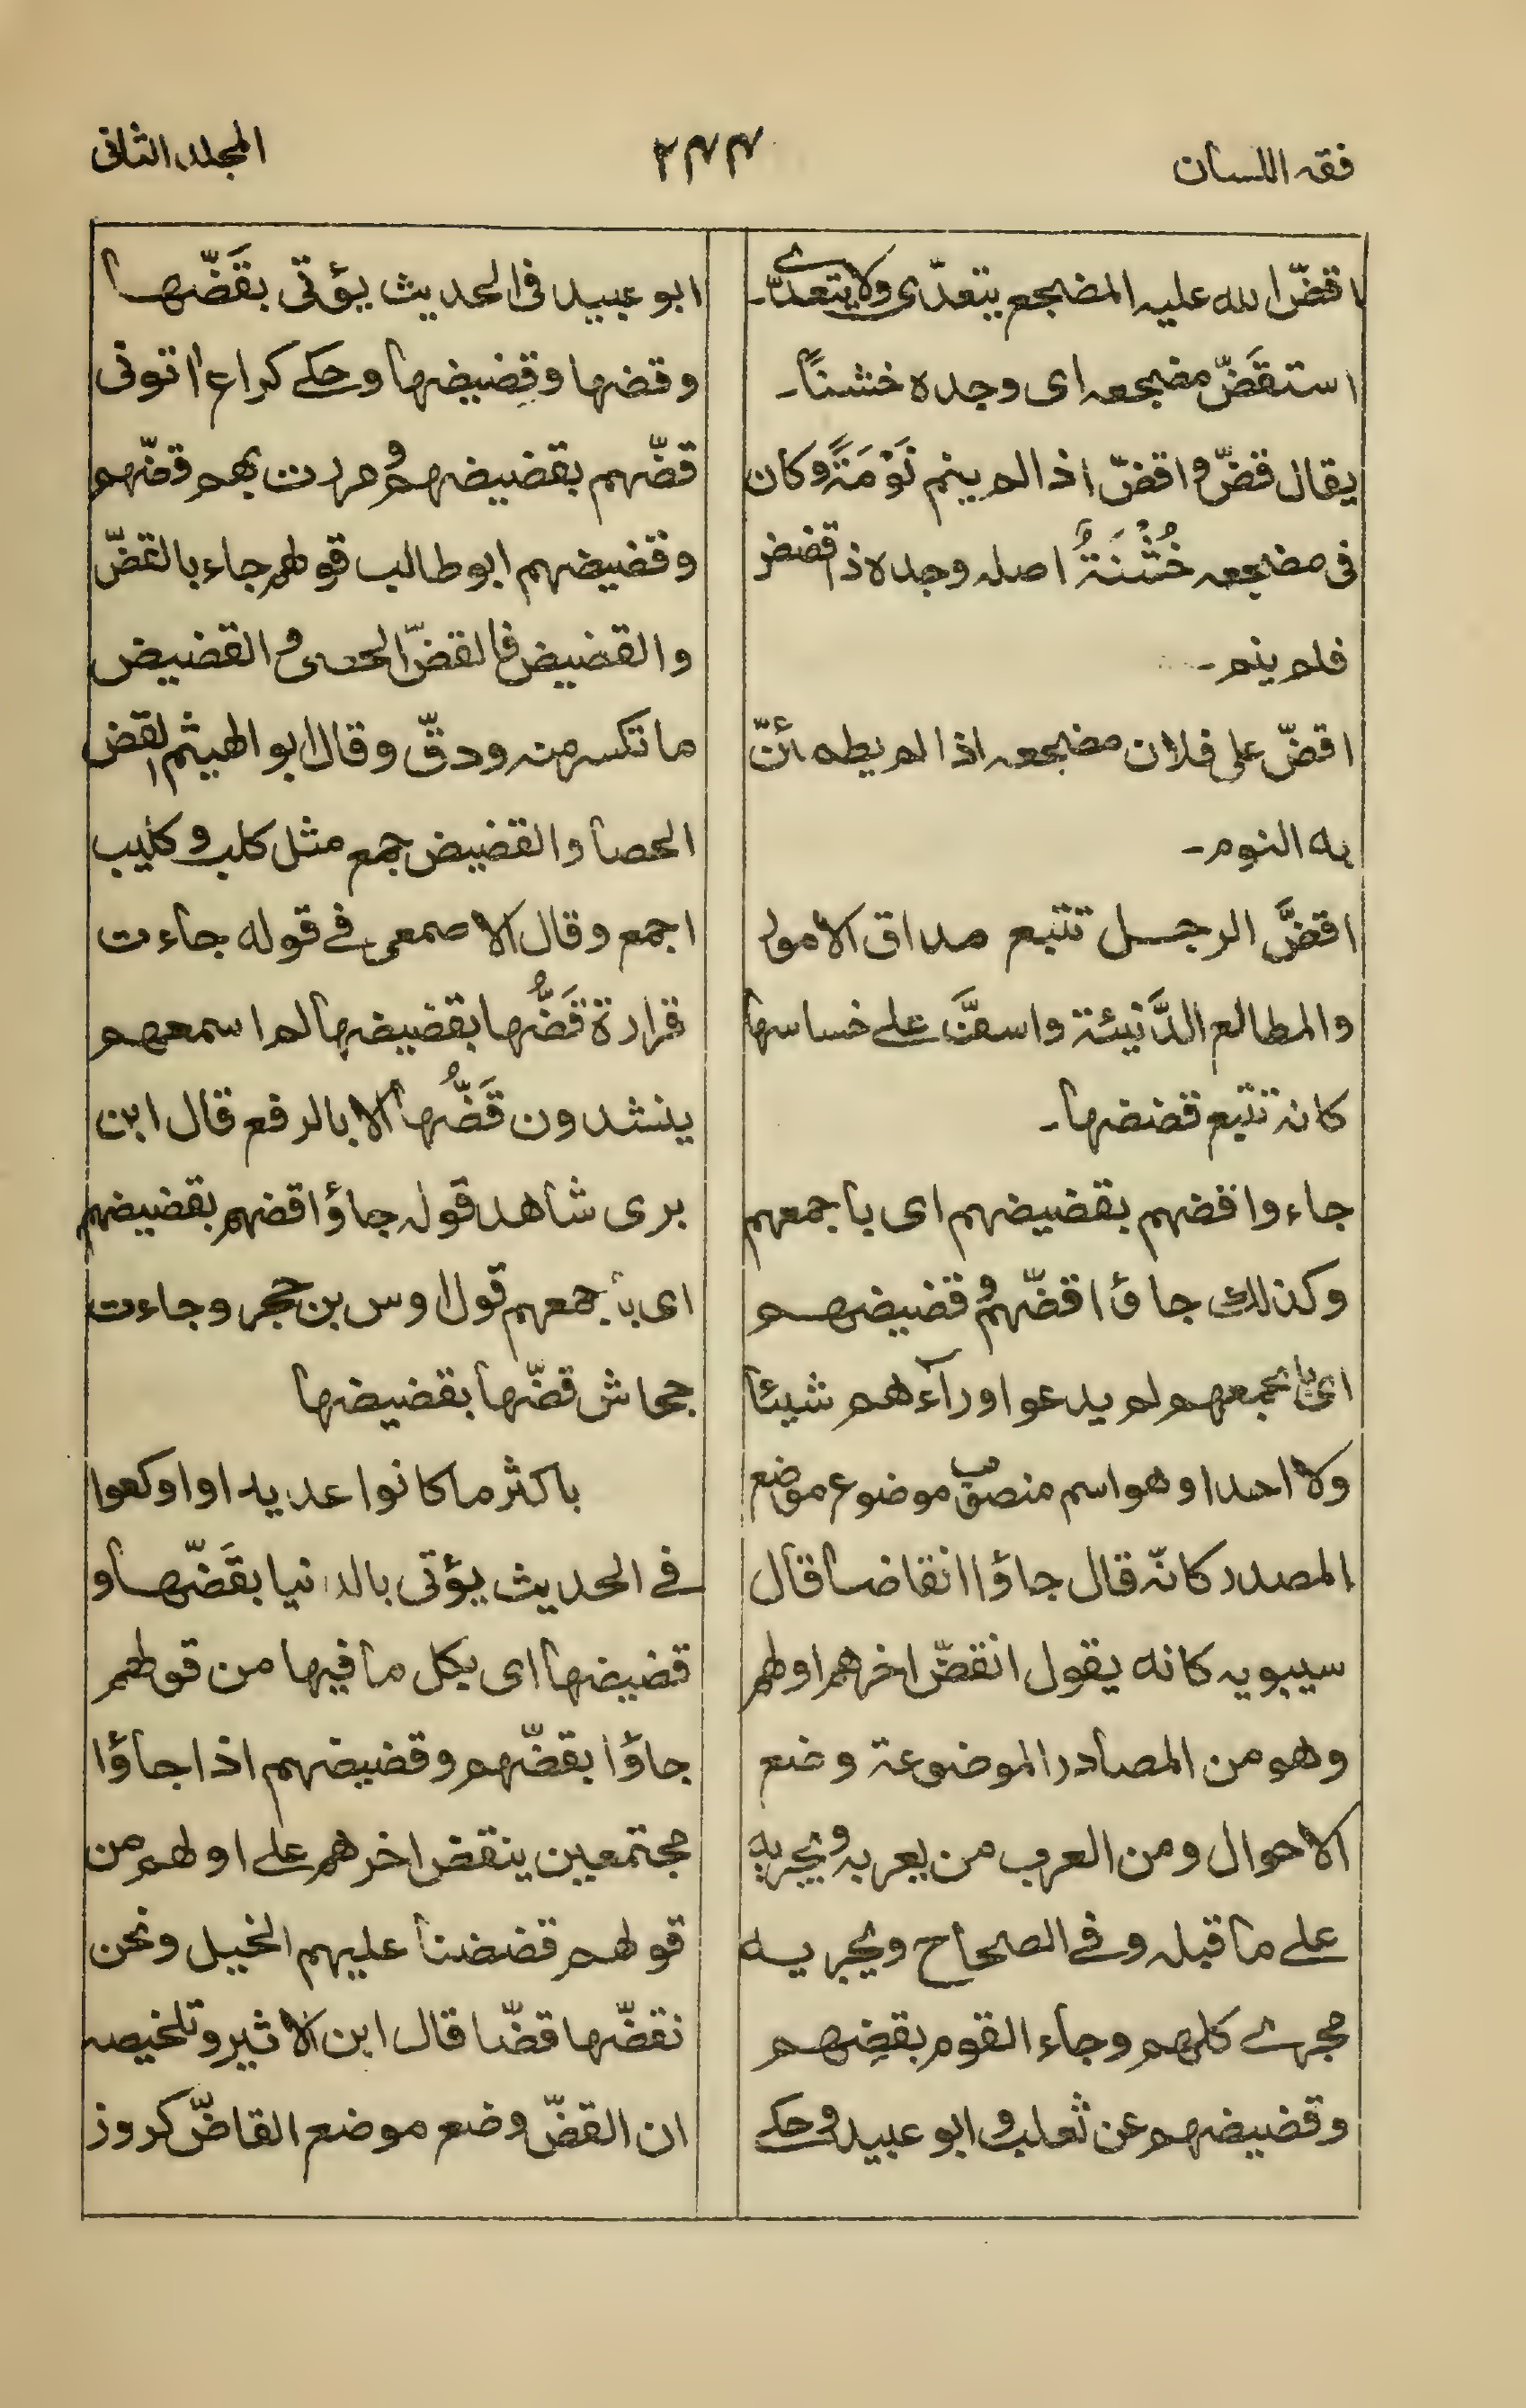 فقہ اللسان
۲۴۴
المجلد الثانی
اقضّ اللہ علیہ المضجع یتعدّی ولا یتعدّی۔
استقَضّ مضجعہ ای وجدہ خشناً۔
یقال قضّ و اقضّ اذا لم ینم نَوْمَۃً و کان
فی مضجعہ خُشْنَۃٌ اصلہ وجدہ ذا قضض
فلم ینم۔
اقضّ علی فلان مضجعہ اذا لم یطمئنّ
بہ النوم۔
اقضَّ الرجل تتبع مداق الامور
والمطالع الدَّنیئۃ واسفَّ علے خساسہا
کانہ تتبع قضضہا۔
جاءوا قضہم بقضیضہم ای باجمعہم
وکذلک جاؤا قضّہم و قضیضہم
ای باجمعہم لم یدعوا ورآءھم شیئا
ولا احدا وھو اسم منصوب موضوع موضع
المصدر کانّہ قال جاؤا انقاضا قال
سیبویہ کانہ یقول انقضّ اخرھم اولھم
وھو من المصادر الموضوعۃ وضع
الاحوال ومن العرب من یعربہ و یجریہ
علے ما قبلہ وفے الصحاح ویجریہ
مجرے کلہم وجاء القوم بقضہم
وقضیضہم عن ثعلب و ابو عبید و حکے
ابو عبید فی الحدیث یؤتی بقَضّہا
وقضہا وقِضیضہا وحکے کراع اتونی
قضّہم بقضیضہم و مررت بھم قضّہم
وقضیضہم ابو طالب قولھم جاء بالقضّ
والقضیض فالقضّ الحصی و القضیض
ما تکسر منہ ودقّ وقال ابو الھیثم القض
الحصا والقضیض جمع مثل کلب و کلیب
اجمع وقال الاصمعی فے قولہ جاءت
فزارۃ قَضُّہا بقضیضہا لم اسمعھم
ینشدون قَضُّہا الا بالرفع قال ابن
بری شاھد قولہ جاؤا قضہم بقضیضہم
ای باجمعہم قول اوس بن حجر وجاءت
جحاش قضّہا بقضیضہا
باکثر ما کانوا عدیدا واوکعوا
فے الحدیث یؤتی بالدنیا بقَضّہا و
قضیضہا ای بکل ما فیہا من قولھم
جاؤا بقضّہم وقضیضہم اذا جاؤا
مجتمعین ینقض اخرھم علے اولھم من
قولھم قضضنا علیہم الخیل ونحن
نقضّہا قضّا قال ابن الاثیر وتلخیصہ
ان القضّ وضع موضع القاضّ کزور